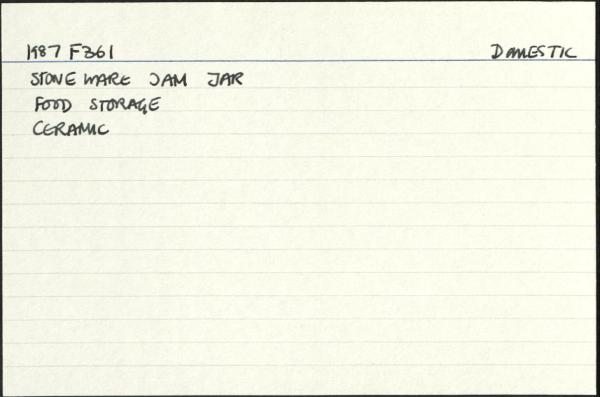 1987 F361 DOMESTIC
STONEWARE JAM JAR
FOOD STORAGE
CERAMIC